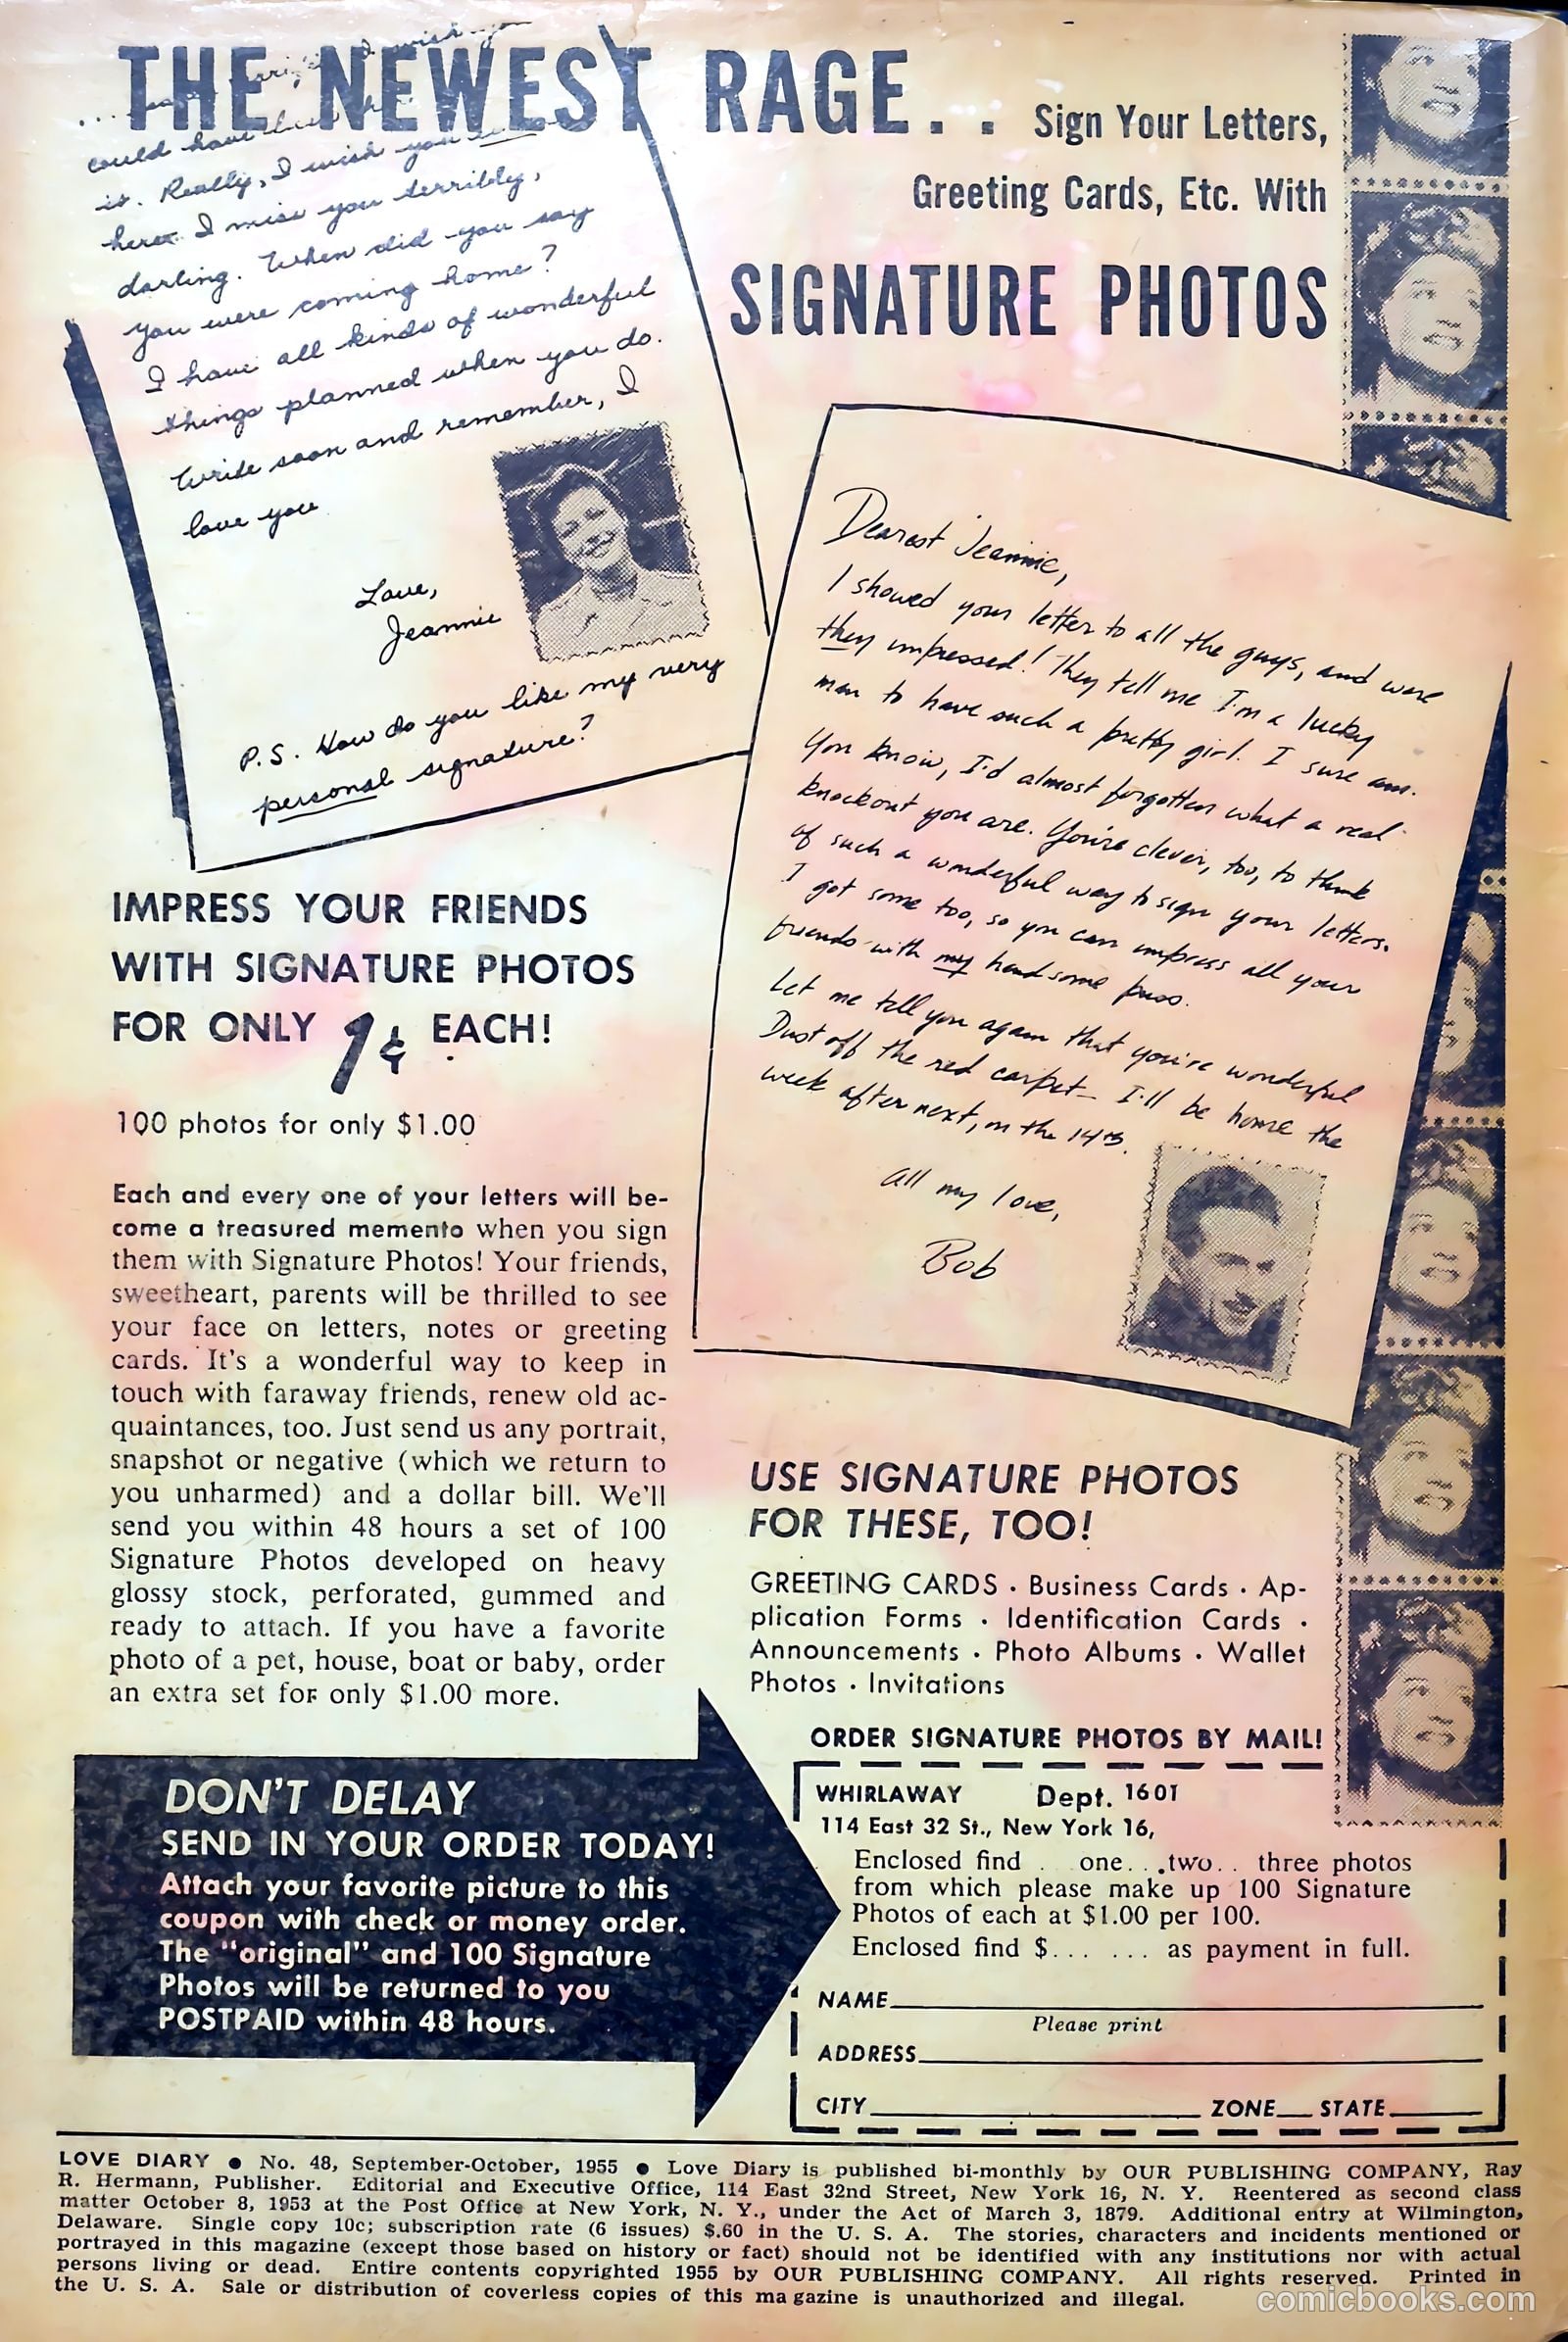 THE NEWEST RAGE..
Sign Your Letters,
Greeting Cards, Etc. With
SIGNATURE PHOTOS
could have
is. Really, I wish you
here. I miss you terribly,
darling. When did you say
you were coming home?
I have all kinds of wonderful
things planned when you do.
Write soon and remember, I
love you
Love,
Jeannie
P.S. How do you like my very
personal signature?
Dearest Jeannie,
I showed your letter to all the guys, and were
they impressed! They tell me I'm a lucky
man to have such a pretty girl. I sure am.
You know, I'd almost forgotten what a real
knockout you are. You're clever, too, to think
of such a wonderful way to sign your letters.
I got some too, so you can impress all your
friends with my handsome puss.
Let me tell you again that you're wonderful
Dust off the red carpet- I'll be home the
week after next, on the 14th.
All my love,
Bob
IMPRESS YOUR FRIENDS
WITH SIGNATURE PHOTOS
FOR ONLY 1¢ EACH!
100 photos for only $1.00
Each and every one of your letters will be-
come a treasured memento when you sign
them with Signature Photos! Your friends,
sweetheart, parents will be thrilled to see
your face on letters, notes or greeting
cards. It's a wonderful way to keep in
touch with faraway friends, renew old ac-
quaintances, too. Just send us any portrait,
snapshot or negative (which we return to
you unharmed) and a dollar bill. We'll
send you within 48 hours a set of 100
Signature Photos developed on heavy
glossy stock, perforated, gummed and
ready to attach. If you have a favorite
photo of a pet, house, boat or baby, order
an extra set for only $1.00 more.
USE SIGNATURE PHOTOS
FOR THESE, TOO!
GREETING CARDS · Business Cards · Ap-
plication Forms · Identification Cards ·
Announcements · Photo Albums · Wallet
Photos · Invitations
DON'T DELAY
SEND IN YOUR ORDER TODAY!
Attach your favorite picture to this
coupon with check or money order.
The "original" and 100 Signature
Photos will be returned to you
POSTPAID within 48 hours.
ORDER SIGNATURE PHOTOS BY MAIL!
WHIRLAWAY Dept. 1601
114 East 32 St., New York 16,
Enclosed find . one. . .two. . three photos
from which please make up 100 Signature
Photos of each at $1.00 per 100.
Enclosed find $. . . . . . as payment in full.
NAME
Please print
ADDRESS
CITY ZONE STATE
LOVE DIARY ● No. 48, September-October, 1955 ● Love Diary is published bi-monthly by OUR PUBLISHING COMPANY, Ray
R. Hermann, Publisher. Editorial and Executive Office, 114 East 32nd Street, New York 16, N. Y. Reentered as second class
matter October 8, 1953 at the Post Office at New York, N. Y., under the Act of March 3, 1879. Additional entry at Wilmington,
Delaware. Single copy 10c; subscription rate (6 issues) $.60 in the U. S. A. The stories, characters and incidents mentioned or
portrayed in this magazine (except those based on history or fact) should not be identified with any institutions nor with actual
persons living or dead. Entire contents copyrighted 1955 by OUR PUBLISHING COMPANY. All rights reserved. Printed in
the U. S. A. Sale or distribution of coverless copies of this magazine is unauthorized and illegal.
comicbooks.com